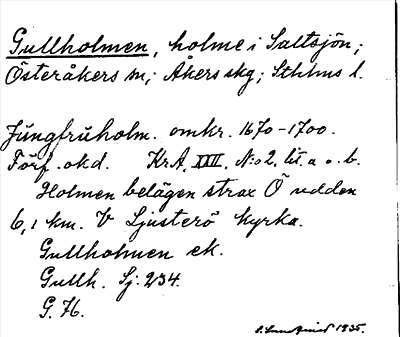 Gullholmen, holme i Saltsjön;
Österåkers sn; Åkers skg; Sthlms l.
Jungfruholm. omkr. 1670-1700.
Förf. okd. Kr.A. XXII. N:o 2, lit. a o. b.
Holmen belägen strax Ö udden
6,1 km. V Ljusterö kyrka.
Gullholmen ek.
Gullh. Sj: 234.
G. 76.
1935.